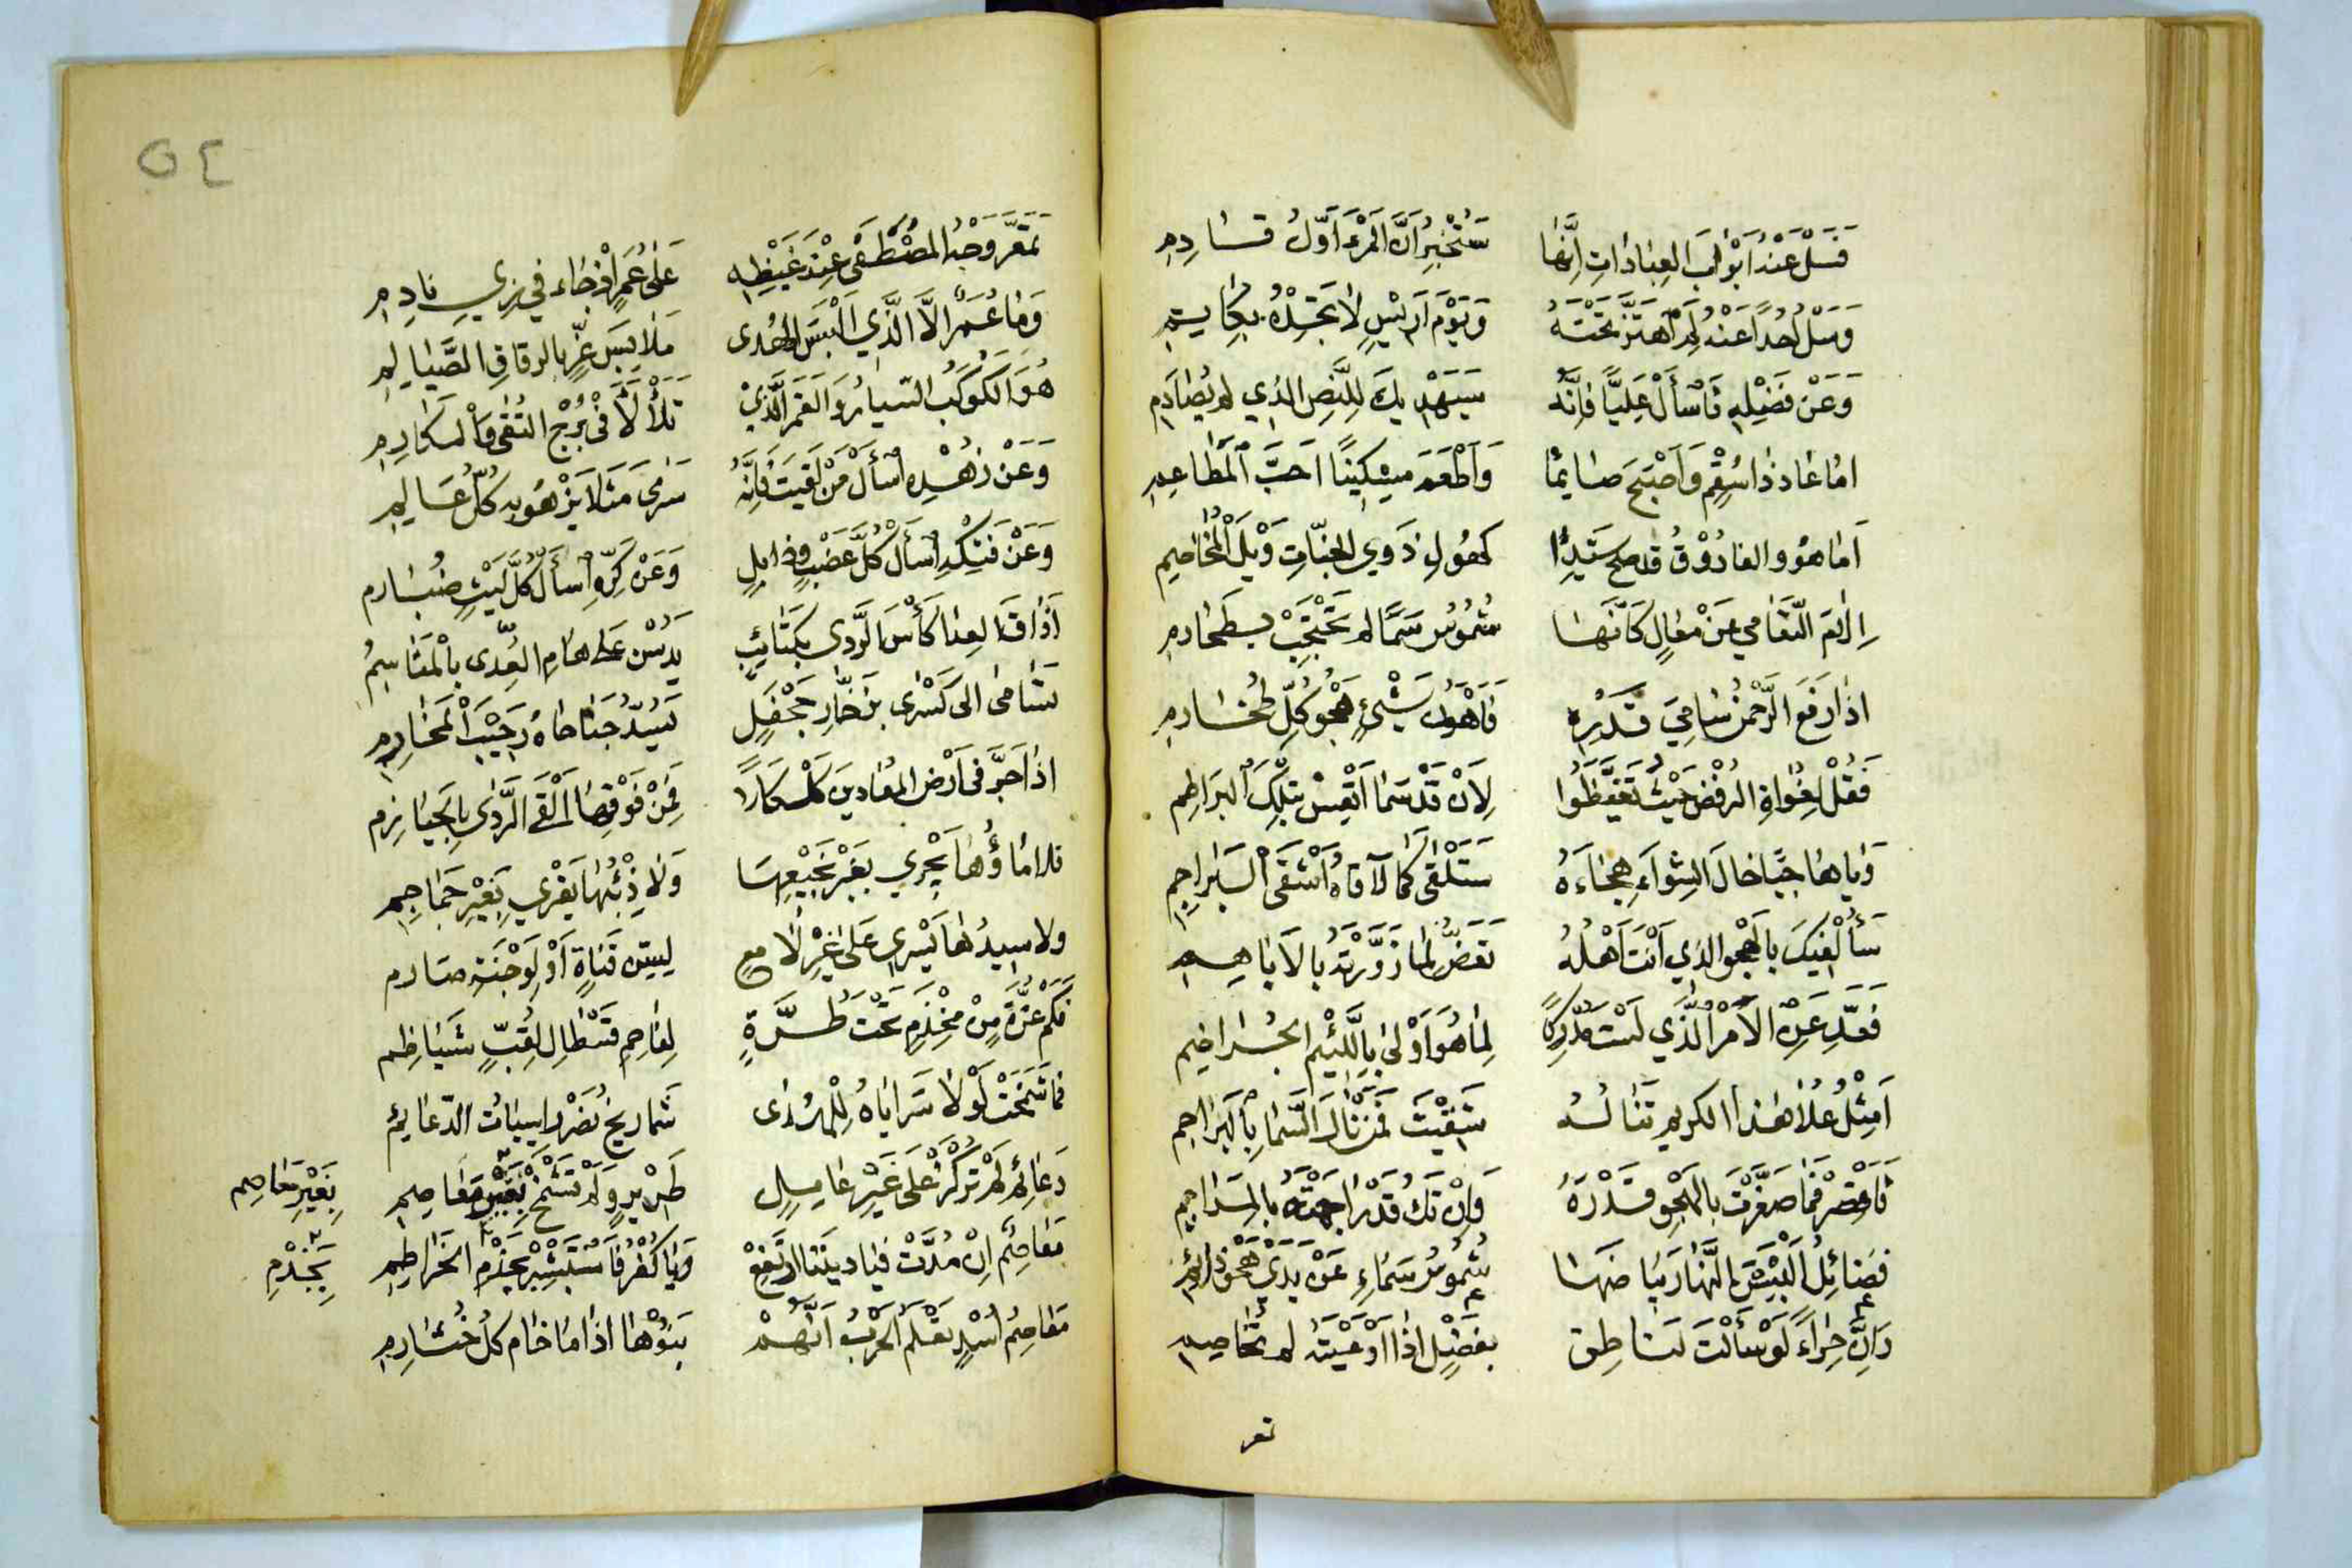 فَسَلْ عَنْهُ اَبْوَابَ العِبَادَاتِ اِنَّهَا سَتُخْبِرُ اَنَّ المَرْءَ اَوَّلُ قَادِمِ
وَسَلْ اُحُدًا عَنْهُ لِمَ اهْتَزَّ تَحْتَهُ وَيَوْمَ اَرِيْسٍ لَا تَجِدْهُ بِكَايِتِمِ
وَعَنْ فَضْلِهِ فَاسْأَلْ عَلِيًّا فَاِنَّهُ سَيَهْدِيكَ لِلنَّصِ الذِي لم يُصَادَمِ
امَا عَادَ ذَا سُقْمٍ وَاَصْبَحَ صَايمًا وَاَطْعَمَ مِسْكِينًا اَحَبَّ اَلْمَطَاعِمِ
اَمَا هُوَ والفَارُوْقُ قد صح سَيِّدَا كهُولِ ذَوِي الجنّاتِ وَيْلَ اْلمُخَاصِمِ
شُمُوسُ سَمًا لم تَحْتَجِبْ بِطَحَارِمِ
اذَا رَفَعَ الرَّحْمنُ سَامِيَ قَدْرِهِ فَاَهْوَنُ شَيْئٍ هَجْوُ كُلِّ طُخَارِمِ
فَقُلْ لِغُوَاةِ الرفْضِ حَيْثُ تَغَيَّظُوا لِاَنْ قَدْ سَمَا اَتْقِسْ بِتِلْكَ اْلبَرَاطِمِ
وَيَا هَاجيًا خَالَ الشِوَاءَ هِجَاءَهُ سَتَلْقَى كَمَا لَاقَاهُ اَشْقَى اْلبَرَاجِمِ
سَأُلْفِيكَ بِالهَجْوِ الذِي اَنْتَ اَهْلُهُ تَعَضُّ لِمَا زَوَّرْتَهُ بِالاَبَاهِمِ
فَعَدِّ عَنِ الاَمْرِ الَّذِي لَسْتَ مُدْرِكًا لِمَا هُوَ اَوْلَىٰ بِاللَّئِيْمِ الجُرَاضِمِ
اَمِثْلُ عُلَا هَذَا الكريمِ تَنَالُهُ شَقِيْتَ فَمَنْ نَالَ السَّمَا بِالبَرَاجِمِ
فَاقْصِرْ فَمَا صَغَّرْتَ بِالهَجْوِ قَدْرَهُ وَاِنْ تَكُ قَدْ رَاجَمْتَهُ بِالمَرَاجِمِ
فَضَائِلُ اَلْبَسْنَ النَّهَارَ بَيَاضَهَا شُمُوسُ سَمَاءٍ عَنْ يَدَيْ هَجْوِ ذَائِمِ
وَاِنَّ حِرَاءً لَوْ سَأَلْتَ لَنَاطِقٌ بِفَضْلٍ اِذَا اَوْعَيْتَهُ لم تخَاصِمِ
تمعر
٥٤
تَمَعَّرَ وَجْهُ المُصْطَفَى عِنْدَ غَيْظِهِ عَلَى عُمَرٍ اِذْ جَاءَ فِي زِيِّ نَادِمِ
وَمَا عُمَرٌ اِلَّا الَّذِي اَلْبَسَ الهُدَى مَلَابِسَ عِزٍّ بِالرقَاقِ الصَّيَالِمِ
هُوَ الكَوكَبُ السَّيارُ وَالقَمَرُ الَّذِيْ تَلَأْلَأَ فِيْ بُرْجِ التُقَى وَاْلمَكَارِمِ
وَعَنْ زُهْدِهِ اسْأَلْ مَنْ لَقِيتَ فَاِنَّهُ سَرَى مَثَلًا يَزْهُو بِهِ كُلُّ عَالِمِ
وَعَنْ فَتْكِهِ اسْأَلْ كُلَّ عَضْبٍ وَذَابِلٍ وَعَنْ كَرِّهِ اسْأَلْ كُلَّ لَيْثٍ ضُبَارمِ
اَذَاقَ العِدَا كَأْسَ الرَّدَى بِكَتَائِبٍ يَدُسْنَ عَلَى هَامِ العِدَى بِاْلمَنَاسِمُ
تَسَامَى الى كَسْرَى بِزَخَّارِ جَحْفَلٍ يَسُدُّ جَنَاحَاهُ رَحِيْبَ اْلمَخَارِمِ
اذَا جَرَّ فى اَرْضِ المُعَادِيْنَ عَسْكَرًا فَمِنْ فَوْقِهَا اَلْقَى الرَّدَى بِالحَيَازِمِ
فلا مَاؤُهَا يَجْرِي بِغَيْرِ نَجِيْعِهَا وَلَا ذِئْبُهَا يَفْرِي بِغَيْرِ جَمَاجِمِ
ولا سِيدُهَا يَسْرِي عَلَى غَيْرِ لَامِعٍ لِبِيْنِ قَنَاةٍ اَوْ لِوَجْنَةِ صَارمِ
فَكَمْ غُرَّةٍ مِنْ مِخْذَمٍ تَحْتَ طُرَّةٍ لِفَاحِمِ قَسْطَالٍ لِقُبٍّ شَيَاظِمِ
فمَا شَمَخَتْ لَوْلَا سَرَايَاهُ لِلْهُدَى شَمَاريخُ نَصْرٍ رَاسِيَاتُ الدّعَايُمِ
دَعَائِم لم تُرْكَزْ عَلَى غَيْرِ عَامِلٍ طَرِيْرٍ وَلَمْ تَشْمَخْ بِغَيْرِ مَعَاصِمِ
بِغَيْرِ مَعَاصِم
مَعَاصِمُ اِنْ مُدَّتْ فَيَا دِيْنَنَا ارْتَفِعْ وَيَا كُفْرُ فَاسْتَبْشِرْ بِجَذْمِ الخَرَاطِمِ
بِجَذْمِ
مَعَاصِمُ اُسْدٍ تَعْلَمُ الحَرْبُ اَنَّهُمْ بَنُوْهَا اذَا مَا خَام كُلُ خُثَارِمِ